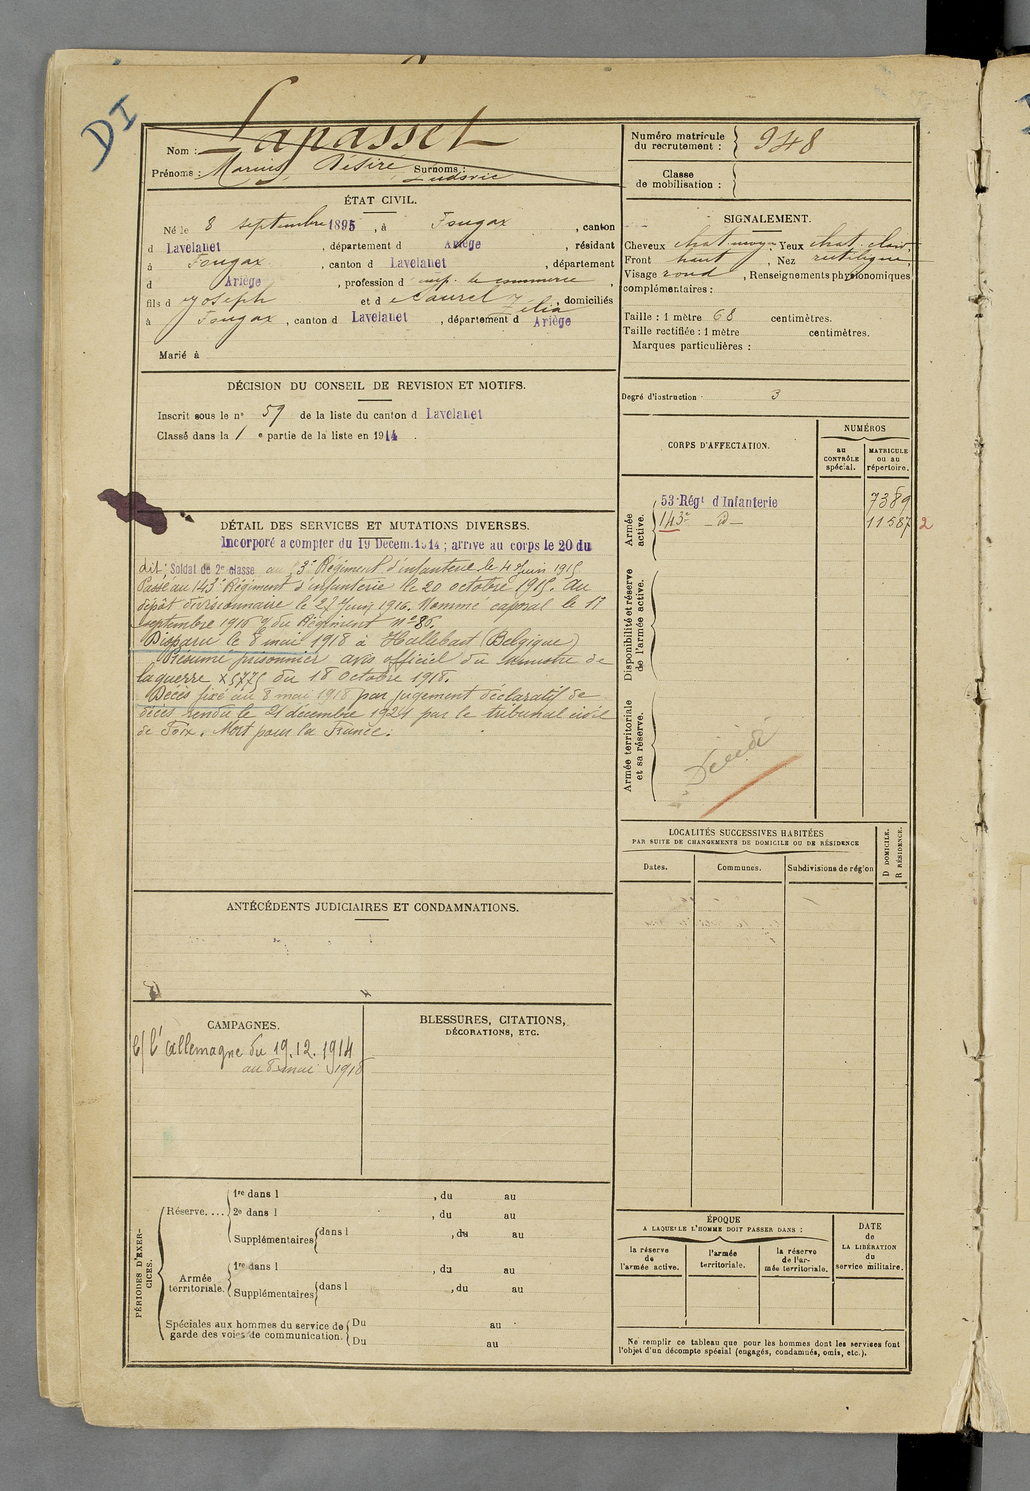 DI
Nom : Lapasset
Prénoms : Marius, Désiré, Surnoms : Ludovic
Numéro matricule du recrutement : 948
Classe de mobilisation :
ÉTAT CIVIL.
Né le 8 septembre 1895, à Fougax, canton
d Lavelanet, département d Ariège, résidant
à Fougax, canton d Lavelanet, département
d Ariège, profession d emp. de commerce,
fils d Joseph et d Laurel Zélia, domiciliés
à Fougax, canton d Lavelanet, département d Ariège
Marié à
SIGNALEMENT.
Cheveux chat. moyen, Yeux chat. clair,
Front haut, Nez rectiligne,
Visage rond, Renseignements physionomiques
complémentaires :
Taille : 1 mètre 68 centimètres.
Taille rectifiée : 1 mètre centimètres.
Marques particulières :
Degré d'instruction 3
DÉCISION DU CONSEIL DE REVISION ET MOTIFS.
Inscrit sous le n° 59 de la liste du canton d Lavelanet
Classé dans la 1 e partie de la liste en 1914.
DÉTAIL DES SERVICES ET MUTATIONS DIVERSES.
Incorporé a compter du 19 Décem. 1914 ; arrive au corps le 20 du
dit ; Soldat de 2e classe au 53e Régiment d'infanterie le 4 Juin 1915
Passé au 143e Régiment d'infanterie le 20 octobre 1915. Au
dépôt divisionnaire le 27 Juin 1916. Nommé caporal le 17
septembre 1916 du Régiment n° 86.
Disparu le 8 mai 1918 à Hallebast (Belgique)
Présumé prisonnier avis officiel du ministre de
la guerre X 5775 du 18 octobre 1918.
Décès fixé au 8 mai 1918 par jugement déclaratif de
décès rendu le 21 décembre 1921 par le tribunal civil
de Foix. Mort pour la France.
CORPS D'AFFECTATION.
NUMÉROS
au CONTRÔLE spécial.
MATRICULE ou au répertoire.
Armée active.
53e Régt d'Infanterie 7389
143e d° 11587 2
Disponibilité et réserve de l'armée active.
Armée territoriale et sa réserve.
Décédé
LOCALITÉS SUCCESSIVES HABITÉES
PAR SUITE DE CHANGEMENTS DE DOMICILE OU DE RÉSIDENCE
Dates.
Communes.
Subdivisions de région
D DOMICILE.
R RÉSIDENCE.
ANTÉCÉDENTS JUDICIAIRES ET CONDAMNATIONS.
CAMPAGNES.
C/ l'allemagne du 19.12.1914
au 8 mai 1918
BLESSURES, CITATIONS,
DÉCORATIONS, ETC.
PÉRIODES D'EXERCICES.
Réserve....
1re dans l , du au
2e dans l , du au
Supplémentaires dans l , du au
Armée territoriale.
1re dans l , du au
Supplémentaires dans l , du au
Spéciales aux hommes du service de
garde des voies de communication.
Du au
Du au
ÉPOQUE
A LAQUELLE L'HOMME DOIT PASSER DANS :
la réserve de l'armée active.
l'armée territoriale.
la réserve de l'armée territoriale.
DATE de LA LIBÉRATION du service militaire.
Ne remplir ce tableau que pour les hommes dont les services font
l'objet d'un décompte spécial (engagés, condamnés, omis, etc.).